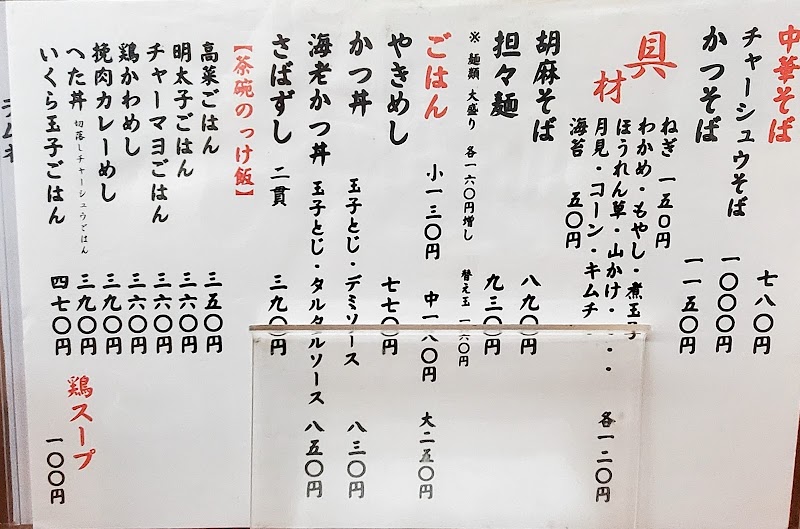 中華そば 七八〇円
チャーシュウそば 一〇〇〇円
かつそば 一一五〇円
具材
ねぎ 一五〇円
わかめ・もやし・煮玉子
ほうれん草・山かけ・
月見・コーン・キムチ・・・ 各一二〇円
海苔 五〇円
胡麻そば 八九〇円
担々麺 九三〇円
※ 麺類 大盛り 各一六〇円増し 替え玉 一六〇円
ごはん 小一三〇円 中一八〇円 大二五〇円
やきめし 七七〇円
かつ丼 玉子とじ・デミソース 八三〇円
海老かつ丼 玉子とじ・タルタルソース 八五〇円
さばずし 二貫 三九〇円
【茶碗のっけ飯】
高菜ごはん 三五〇円
明太子ごはん 三六〇円
チャーマヨごはん 三六〇円
鶏かわめし 三六〇円
挽肉カレーめし 三九〇円
へた丼 切落しチャーシュウごはん 三九〇円
いくら玉子ごはん 四七〇円
鶏スープ 一〇〇円